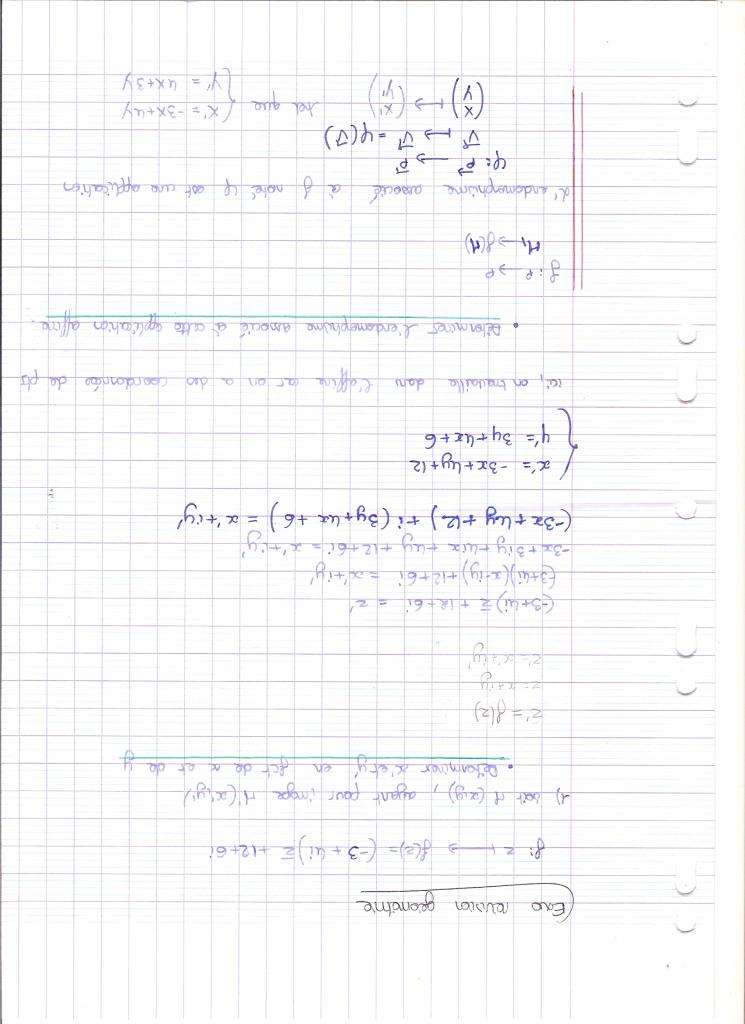 Exo révision géométrie
f: z ⟼ f(z) = (-3 + 4i) z̅ + 12+6i
1) soit M (x;y), ayant pour image M' (x';y')
• Déterminer x' et y' en fct de x et de y
z' = f(z)
z = x+iy
z' = x'+iy'
(-3+4i) z̅ + 12+6i = z'
(-3+4i)(x-iy)+12+6i = x'+iy'
-3x+3iy+4ix+4y+12+6i = x'+iy'
(-3x+4y+12) + i (3y+4x+6) = x'+iy'
{ x' = -3x+4y+12
y' = 3y+4x+6
ici, on travaille dans l'affine car on a des coordonnées de pts
• Déterminer l'endomorphisme associé à cette application affine.
f: P → P
M ↦ f(M)
L'endomorphisme associé à f noté φ est une application
φ: P⃗ → P⃗
V⃗ ↦ V⃗' = φ(V⃗)
(X Y) ↦ (X' Y') tel que { X' = -3X+4Y
Y' = 4X+3Y